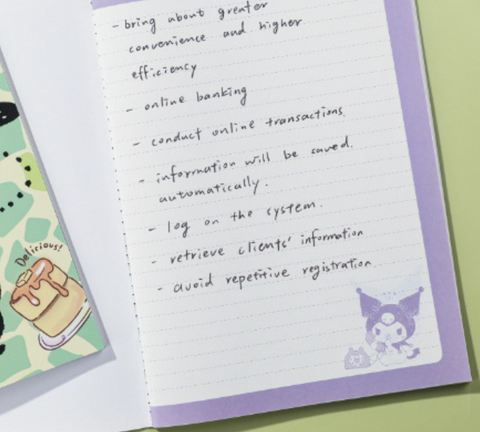 - bring about greater
convenience and higher
efficiency
- online banking
- conduct online transactions.
- information will be saved.
automatically.
- log on the system.
- retrieve clients' information
- avoid repetitive registration.
Delicious!